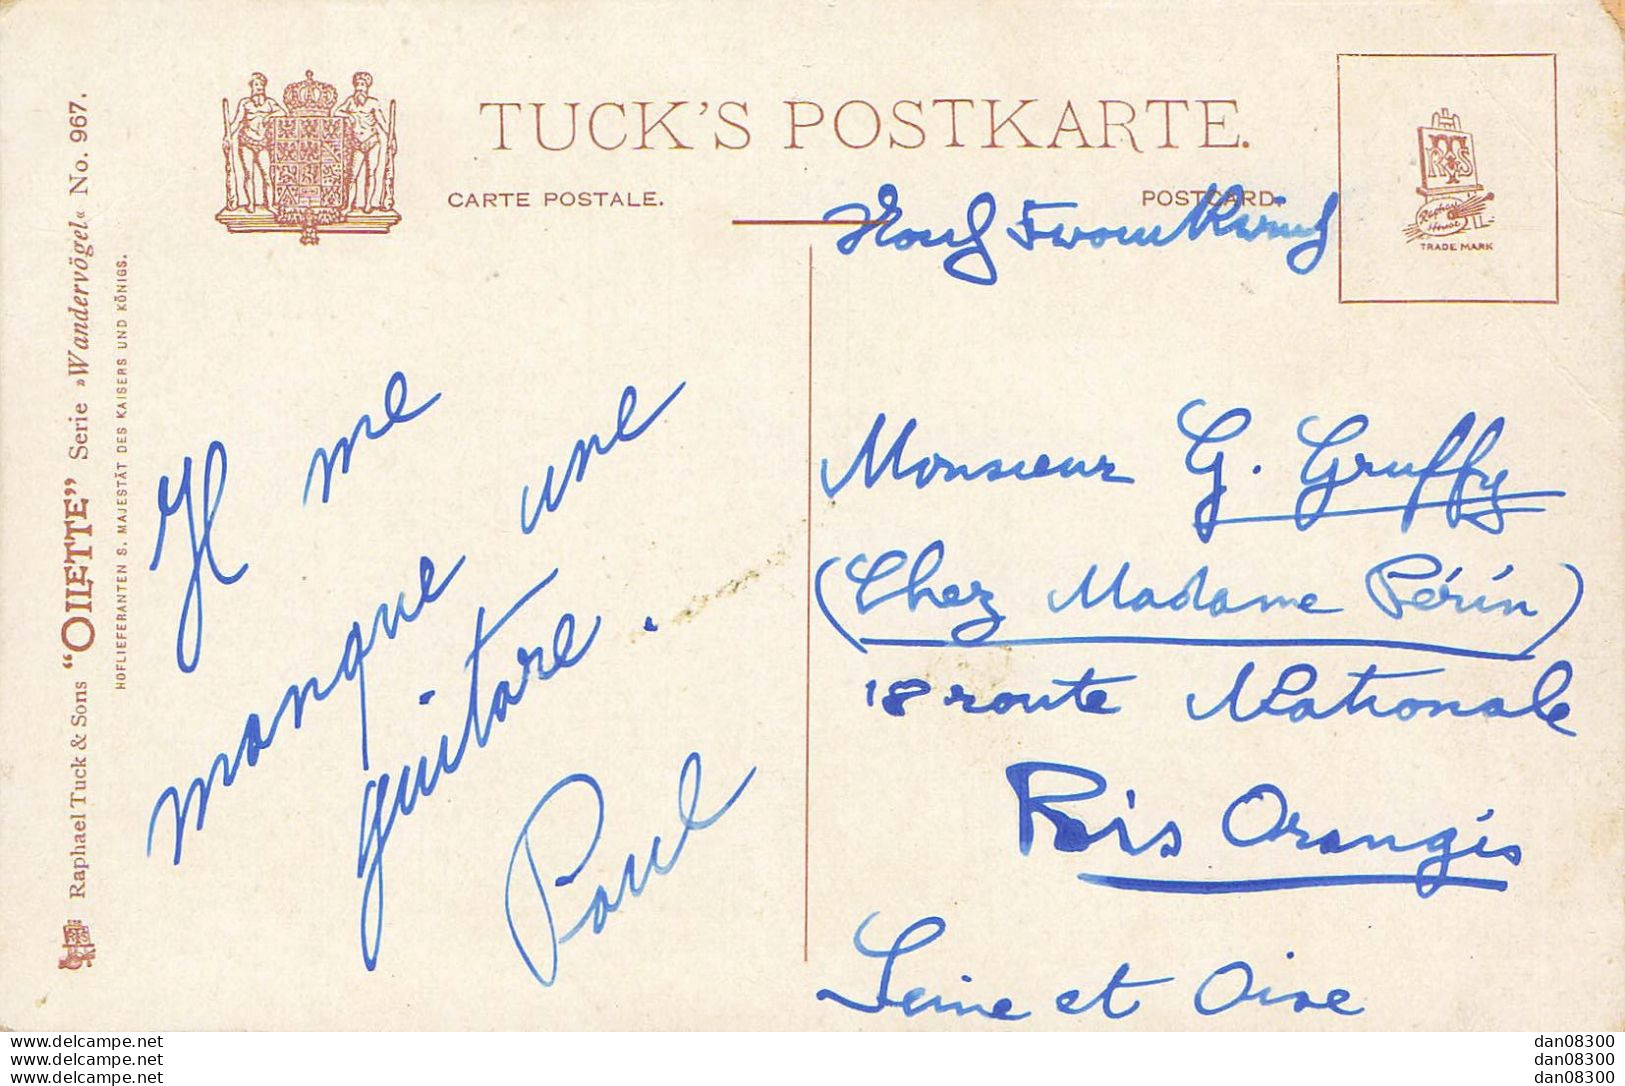 TUCK'S POSTKARTE.
CARTE POSTALE.
POSTCARD.
TRADE MARK
Raphael Tuck & Sons "OILETTE" Serie »Wandervögel« No. 967.
HOFLIEFERANTEN S. MAJESTÄT DES KAISERS UND KÖNIGS.
Il me
manque une
guitare.
Paul
Monsieur G. Gruffy
(Chez Madame Périn)
18 route Nationale
Ris Orangis
Seine et Oise
www.delcampe.net
www.delcampe.net
www.delcampe.net
dan08300
dan08300
dan08300